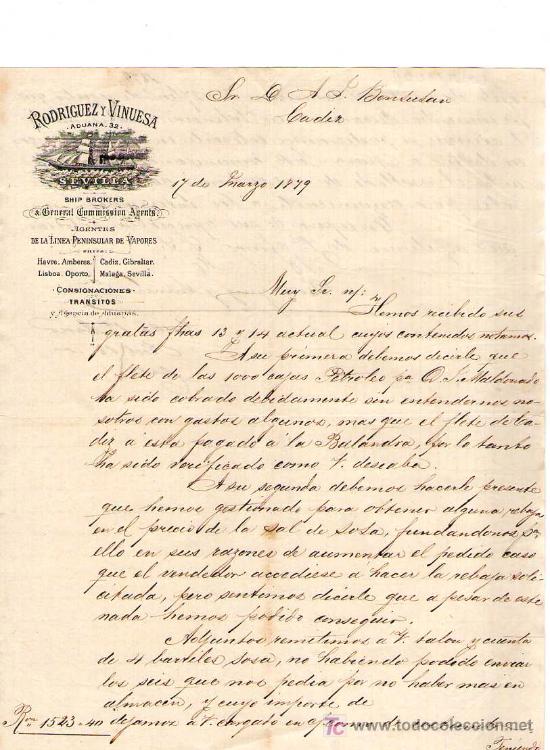 RODRIGUEZ Y VINUESA
ADUANA. 32.
SEVILLA
SHIP BROKERS
& General Commission Agents.
AGENTES
DE LA LINEA PENINSULAR DE VAPORES
ENTRE
Havre, Amberes. Cadiz, Gibraltar.
Lisboa, Oporto. Malaga, Sevilla.
CONSIGNACIONES
TRANSITOS
y Agencia de Aduanas.
Sr. D. A. J. Bensusan
Cadiz
17 de Marzo 1879
Muy Sr. n/:
Hemos recibido sus
gratas fhas 13 y 14 actual cuyos contenidos notamos.
A su primera debemos decirle que
el flete de las 1000 cajas Petroleo pa D. J. Maldonado
ha sido cobrado debidamente sin entendernos no-
sotros con gastos algunos, mas que el flete de Ca-
diz á esta pagado á la Balandra, por lo tanto
ha sido verificado como V. deseaba.
A su segunda debemos hacerle presente
que hemos gestionado para obtener alguna rebaja
en el precio de la sal de sosa, fundandonos pa
ello en sus razones de aumentar el pedido caso
que el vendedor accediese á hacer la rebaja soli-
citada, pero sentimos decirle que a pesar de este
nada hemos podido conseguir.
Adjuntos remitimos á V. talon y cuenta
de 4 barriles sosa, no habiendo podido enviar
los seis que nos pedia por no haber mas en
almacén, y cuyo importe de
Rvn 1523-40 dejamos á V. cargado en
Teniendo
todocoleccion.net